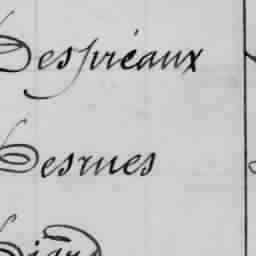 Despréaux
Desrues